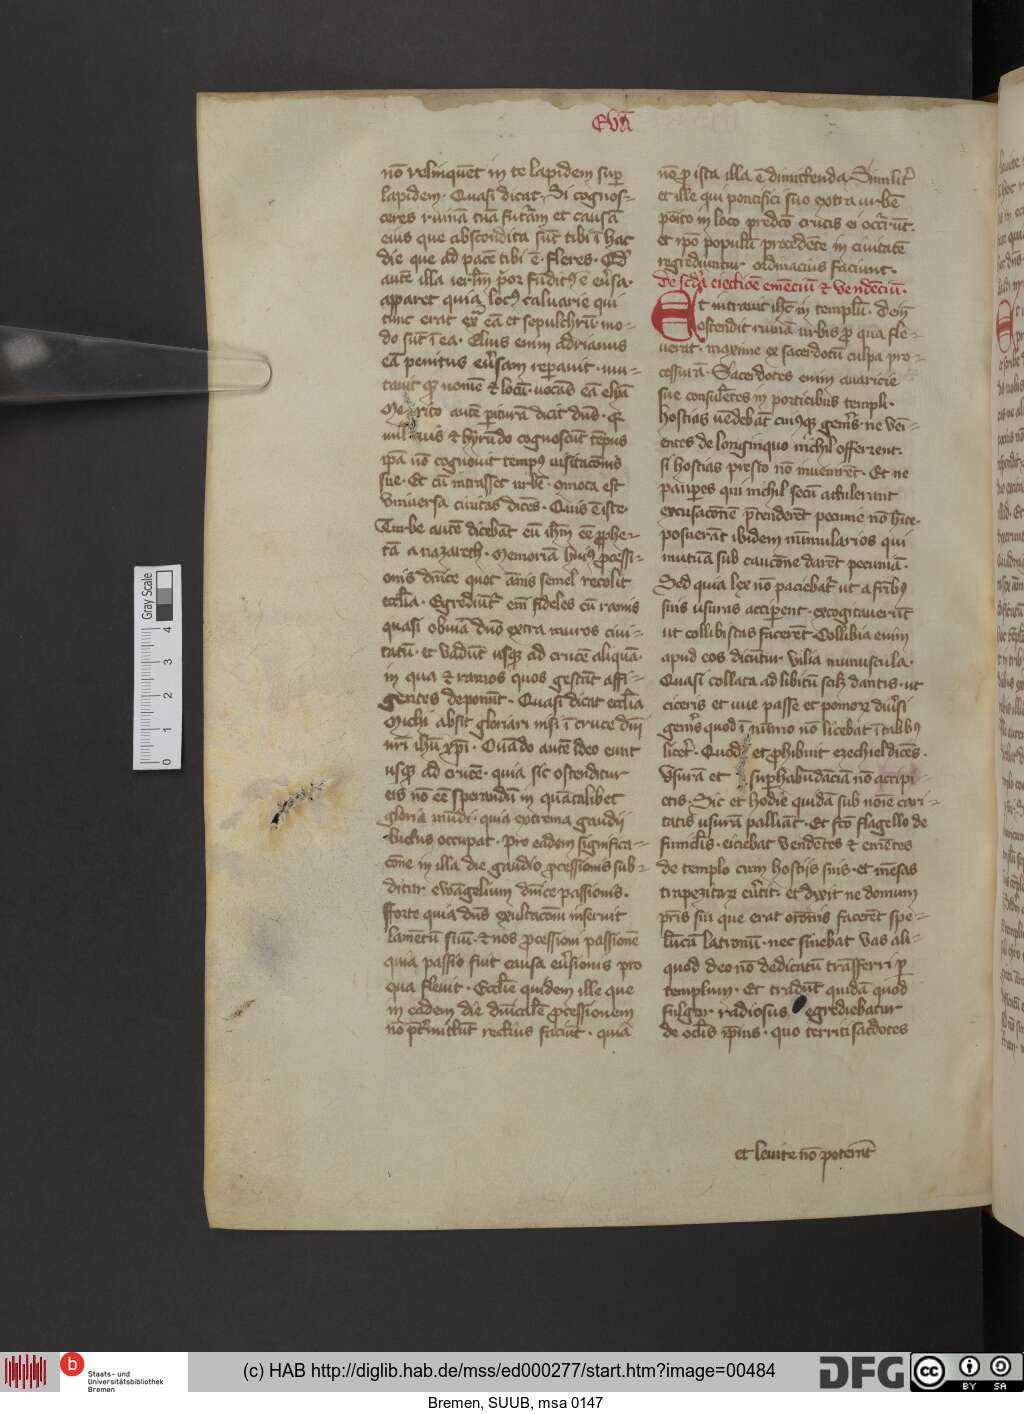 Eva͞
no͞ relinquent in te lapidem sup
lapidem. Quasi dicat. Si cognos=
ceres ruina͞ tua͞ futura͞m et causa͞
eius que abscondita su͞t tibi i͞ hac
die que ad pace͞ tibi e͞. fleres. Qd͞
aute͞ illa ierl͞m pͥor fu͞ditꝰ e͞ eu͞sa.
apparet quia locꝰ caluarie qui
tunc erat ex͞ ea͞ et sepulchru͞. mo=
do su͞t i͞ ea. Elius enim adrianus
ea͞ penitus eu͞sam repauit. mu=
tauit qꝫ nome͞ ⁊ locu͞. uocas ea͞ elia͞
Me rito aute͞ pitura͞ dicit dn͞s. qꝛ
mil uus ⁊ hyru͞do cognoscu͞t te͞pus
ip͞a no͞ cognouit tempꝰ uisitaco͞nis
sue. Et cu͞ intrasset urbe͞. mota est
vniuersa ciuitas dice͞s. Quis e͞ iste.
Turbe aute͞ diceba͞t eu͞ ih͞m ee͞ p̱phe=
ta͞ a nazareth. Memoria͞ huiꝰ p̱cessi=
onis d͞nice quot a͞nis semel recolit
eccl͞ia. Egrediu͞t͛ em͞ fideles cu͞ ramis
quasi obuia͞ dn͞o extra muros ciui=
tatu͞. et vadu͞t usqꝫ ad cruce͞ aliqua͞.
in qua ⁊ ramos quos gestu͞t affi=
gentes deponu͞t. Quasi dicat eccl͞ia
Michi absit gloriari nisi i͞ cruce dn͞i
nr͞i ih͞u xp͞i. Qua͞do aute͞ ideo eunt
usqꝫ ad cruce͞. quia sic ostenditur
eis no͞ ee͞ speranda͞ in qua͞talibet
gloria mu͞di. quia extrema gaudii
luctus occupat. Pro eadem significa=
co͞ne in illa die gaudio p̱cessionis sub=
ditur ewa͞gelium dn͞ice passionis.
fforte quia dn͞s exultaco͞ni inseruit
lame͞tu͞ suu͞. ⁊ nos p̱cessioni passione͞
quia passio fuit causa eu͞sionis pro
qua fleuit. Eccl͞ie quidem ille que
in eadem die dn͞icale͞ p̱cessionem
no͞ p͞termittu͞t rectius faciu͞t. quia
no͞ p ista illa e͞ dimittenda. Simili͛t
et ille qui pontifici suo extra urbe͞
posito in loco predc͞o crucis ei occ͛ru͞t.
et ip͞o populu͞ precede͞te in ciuitate͞
regrediuntur ordinacius faciunt.
de scd͞a eiectio͞e eme͞ciu͞ ⁊ vende͞ciu͞.
Et intrauit ih͞c in templu͞. dein͞
ostendit ruina͞ urbis p qua fle=
uerat. maxime ex sacerdotu͞ culpa pro=
cessura͞. Sacerdotes enim auaricie
sue consule͞tes in porticibus templi.
hostias ue͞deba͞t cuiꝰqꝫ gen͛is. ne ve͞i=
entes de longinquo nichil offerrent.
si hostias presto no͞ inuenire͞t. Et ne
paup̱es qui nichil secu͞ attulerunt
excusaco͞ne͞ p͞tendere͞t pecunie no͞ h͞ite.
posuera͞t ibidem nu͞mularios qui
mutua͞ sub cauco͞ne dare͞t pecunia͞.
Sed quia lex no͞ pacieba͛t ut a fr͞ibꝰ
suis usuras accip̱ent. excogitaueru͞t
ut collibistas facere͞t. Collibia enim
apud eos dicu͞tur vilia munuscula.
Quasi collata ad libitu͞ sclꝫ dantis. ut
ciceris et uue passe et pomoꝝ diu͛si
gen͛is quod i͞ nu͞mo no͞ licebat i͞ talibꝰ
lice͛t. Quod et p̱hibuit ezechiel dice͞s.
Vsura͞ et sup̱habu͞dacia͞ no͞ accipi=
etis. Sic et hodie quida͞ sub no͞ie cari=
tatis usura͞ pallia͞t. Et fc͞o flagello de
funicl͞is. eiciebat vende͞tes ⁊ eme͞tes
de templo cum hostijs suis. et me͞sas
trapezitaꝝ eu͛tit. et dixit ne domum
pr͞is sui que erat or͞onis facere͞t spe=
lu͞ca͞ latronu͞. nec sinebat vas ali=
quod deo no͞ dedicatu͞ tra͞sferri p
templum. Et tradu͞t quida͞ quod
fulgor radiosus egrediebatur
de oc͞lis ip͞ius. quo territi sac͛dotes
et leuite no͞ poteru͞t
Gray Scale
0 1 2 3 4
b Staats- und
Universitätsbibliothek
Bremen
(c) HAB http://diglib.hab.de/mss/ed000277/start.htm?image=00484
DFG
cc BY SA
Bremen, SUUB, msa 0147